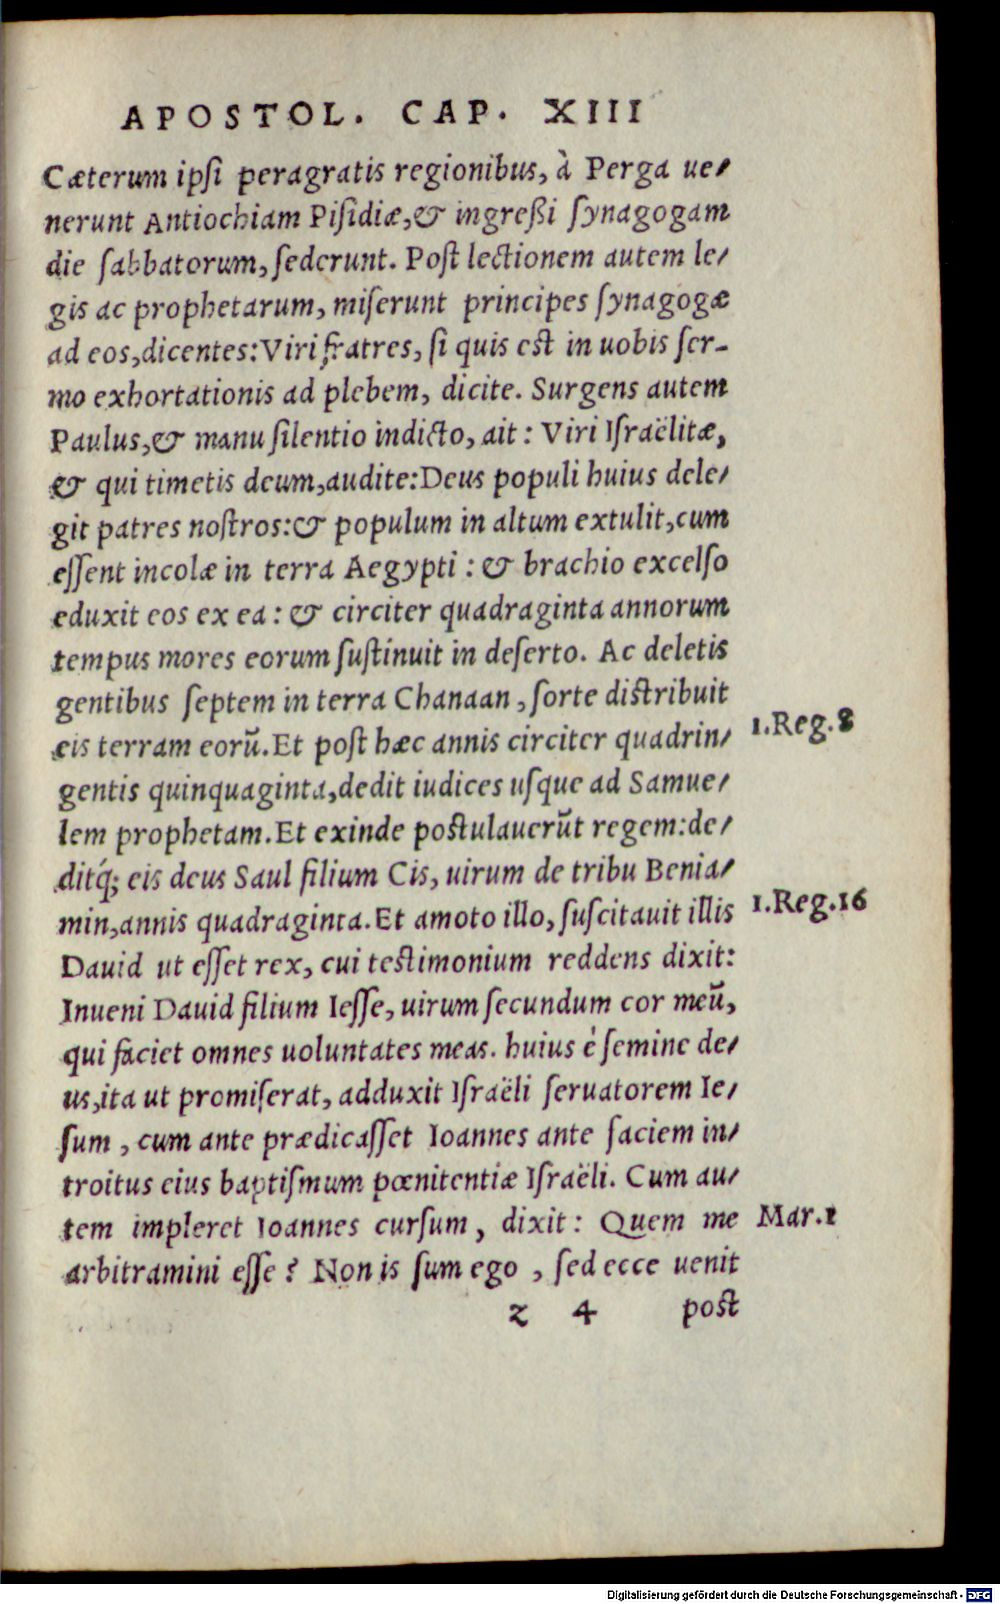 APOSTOL. CAP. XIII
Cæterum ipſi peragratis regionibus, à Perga ue⸗
nerunt Antiochiam Piſidiæ,& ingreßi ſynagogam
die ſabbatorum, ſederunt. Poſt lectionem autem le⸗
gis ac prophetarum, miſerunt principes ſynagogæ
ad eos,dicentes:Viri fratres, ſi quis eſt in uobis ſer-
mo exhortationis ad plebem, dicite. Surgens autem
Paulus,& manu ſilentio indicto, ait: Viri Iſraëlitæ,
& qui timetis deum,audite:Deus populi huius dele⸗
git patres noſtros:& populum in altum extulit,cum
eſſent incolæ in terra Aegypti: & brachio excelſo
eduxit eos ex ea: & circiter quadraginta annorum
tempus mores eorum ſuſtinuit in deſerto. Ac deletis
gentibus ſeptem in terra Chanaan, ſorte diſtribuit
eis terram eorũ.Et poſt hæc annis circiter quadrin⸗
1.Reg.8
gentis quinquaginta,dedit iudices uſque ad Samue⸗
lem prophetam.Et exinde poſtulauerũt regem:de⸗
ditq́; eis deus Saul filium Cis, uirum de tribu Benia⸗
min,annis quadraginta.Et amoto illo, ſuſcitauit illis
1.Reg.16
Dauid ut eſſet rex, cui teſtimonium reddens dixit:
Inueni Dauid filium Ieſſe, uirum ſecundum cor meũ,
qui faciet omnes uoluntates meas. huius è ſemine de⸗
us,ita ut promiſerat, adduxit Iſraëli ſeruatorem Ie⸗
ſum, cum ante prædicaſſet Ioannes ante faciem in⸗
troitus eius baptiſmum pœnitentiæ Iſraëli. Cum au⸗
tem impleret Ioannes curſum, dixit: Quem me
Mar.1
arbitramini eſſe? Non is ſum ego, ſed ecce uenit
z 4 poſt
Digitalisierung gefördert durch die Deutsche Forschungsgemeinschaft - DFG